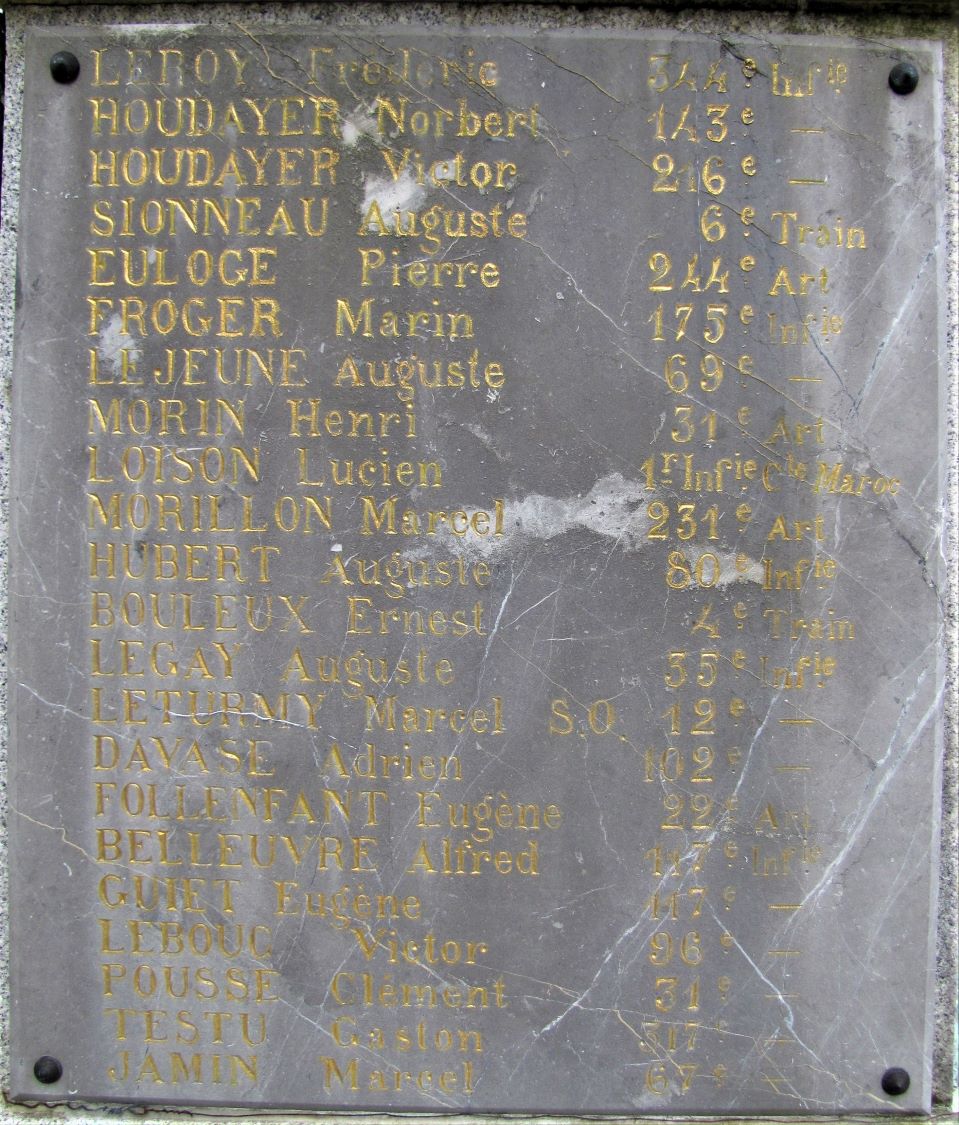 LEROY Fréderic 344e Infie
HOUDAYER Norbert 143e —
HOUDAYER Victor 216e —
SIONNEAU Auguste 6e Train
EULOGE Pierre 244e Art
FROGER Marin 175e Infie
LEJEUNE Auguste 69e —
MORIN Henri 31e Art
LOISON Lucien 1r Infie Cle Maroc
MORILLON Marcel 231e Art
HUBERT Auguste 80e Infie
BOULEUX Ernest 4e Train
LEGAY Auguste 35e Infie
LETURMY Marcel S.O. 12e —
DAVASE Adrien 102e —
FOLLENFANT Eugène 22e Art
BELLEUVRE Alfred 117e Infie
GUIET Eugène 117e —
LEBOUC Victor 96e —
POUSSE Clément 31e —
TESTU Gaston 317e —
JAMIN Marcel 67e —